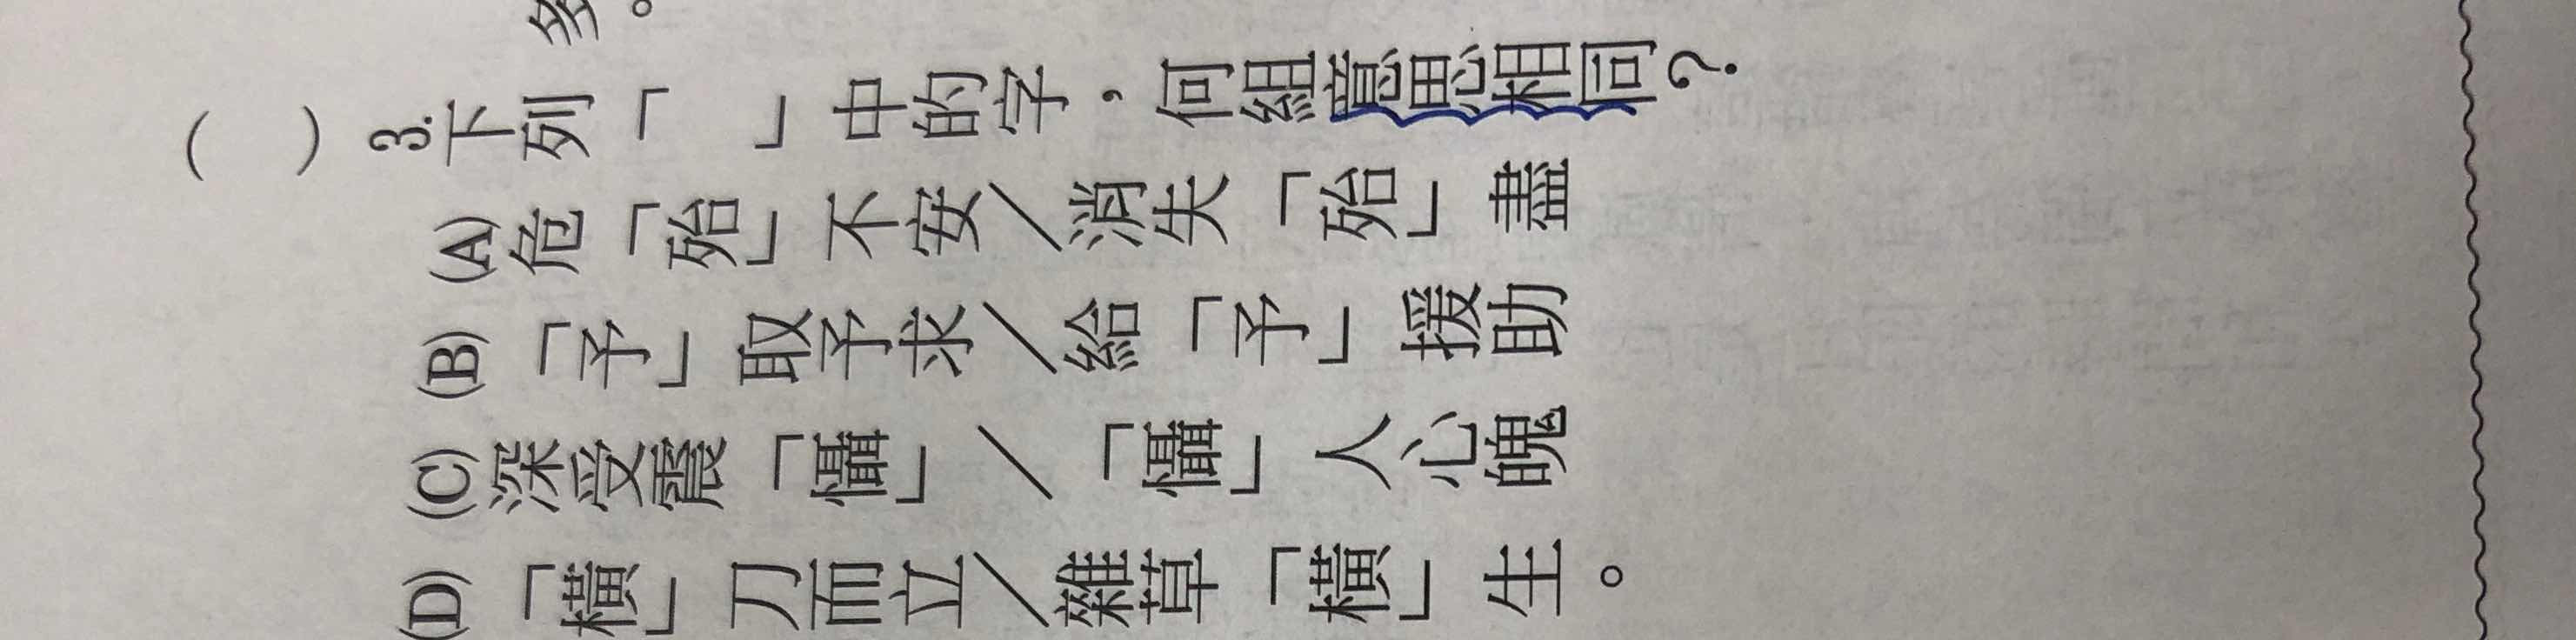 多。
( ) 3.下列「 」中的字，何組意思相同？
(A)危「殆」不安／消失「殆」盡
(B)「予」取予求／給「予」援助
(C)深受震「懾」／「懾」人心魄
(D)「橫」刀而立／雜草「橫」生。